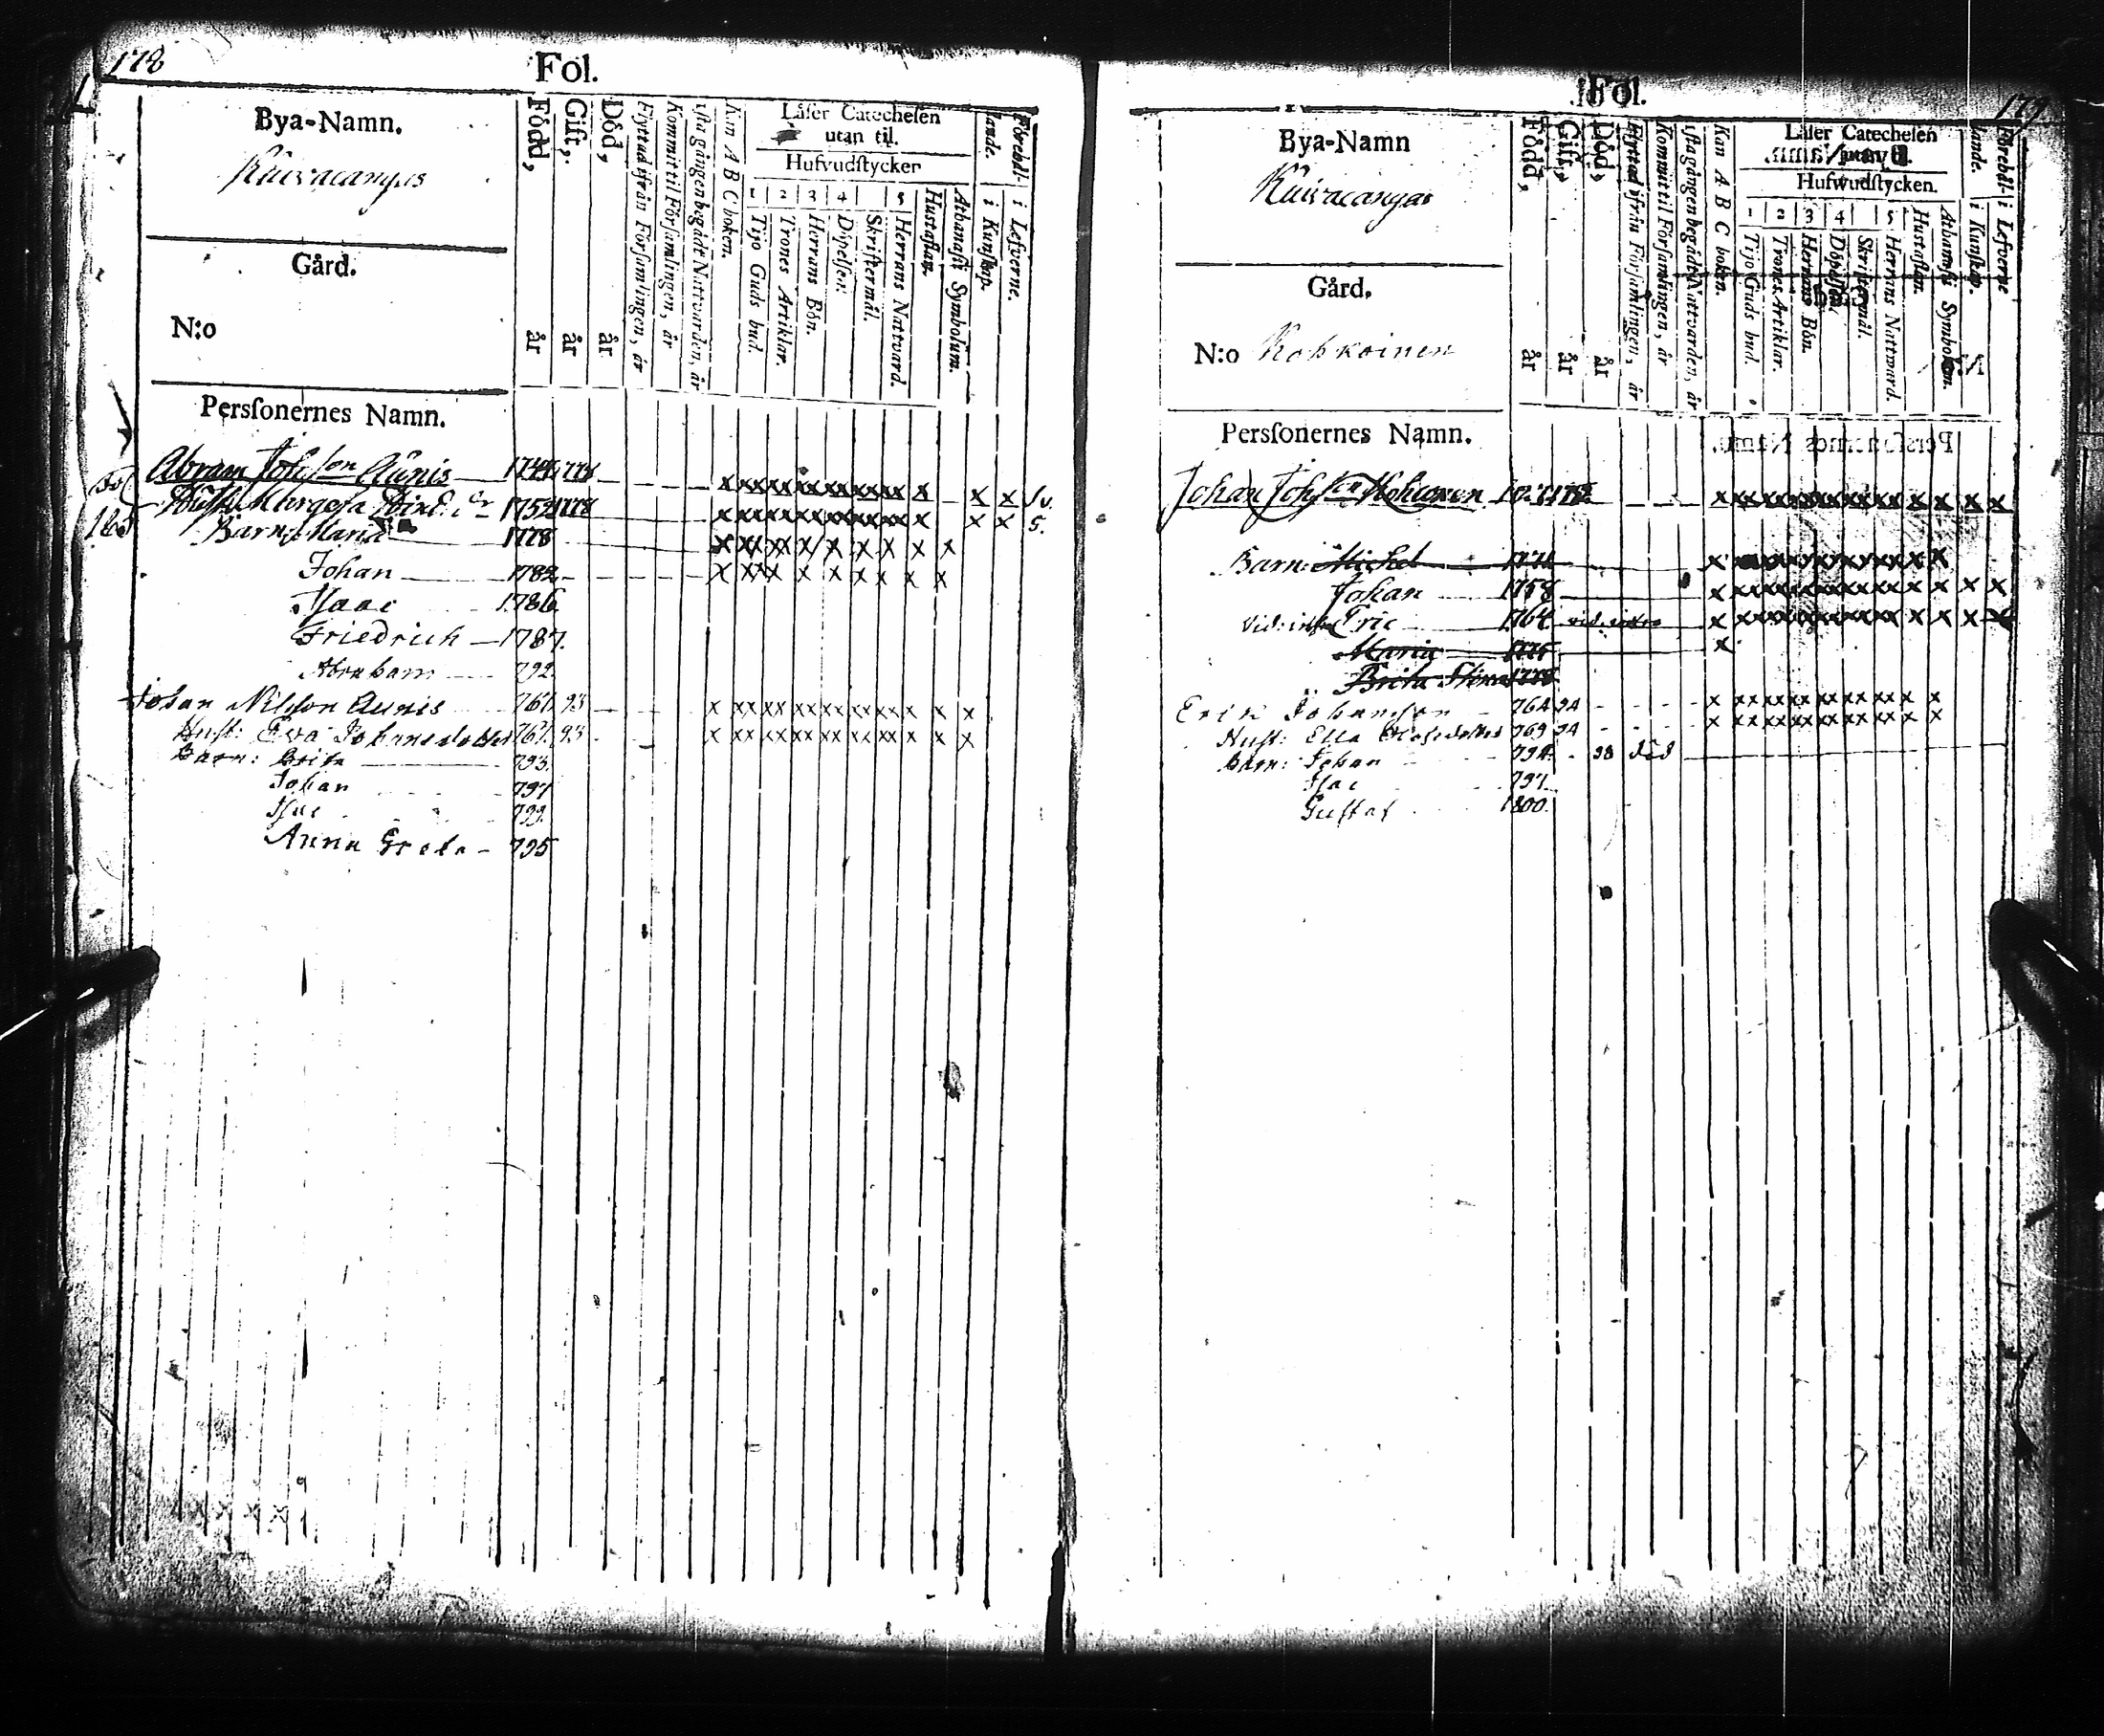 178
Fol.
Bya-Namn.
Kuivacangas
Gård.
N:o
Persſonernes Namn.
Född, år
Gift, år
Död, år
Flyttad ifrån Förſamlingen, år
Kommit til Förſamlingen, år
1ſta gången begådt Nattvarden, år
Kan A B C boken.
Läſer Catecheſen
utan til.
Hufvudſtycker
1 2 3 4 5
Tijo Guds bud.
Trones Artiklar.
Herrans Bön.
Döpelſen.
Skriftermål.
Herrans Natvard.
Huſtaflan.
Athanaſii Symbolum.
Förehållande.
i Kunſkap.
i Lefverne.
Abram Johſson Aunis 1778
Huſt. Margeta 1752 1778
Barn Maria 1778
Johan 1782
Iſaac 1786
Friedrich 1787.
Abraham 792.
Johan Nilſson Aunis 761. 93
Huſt: Eva Johansdotter 767. 93
Barn: Brita 793.
Johan 797
Iſac 799.
Anna Greta 795
179
Fol.
Bya-Namn
Kuivacangas
Gård.
N:o Kohkoinen
Persſonernes Namn.
Född, år
Gift, år
Död, år
Flyttad ifrån Förſamlingen, år
Kommit til Förſamlingen, år
1ſta gången begådt Nattvarden, år
Kan A B C boken.
Läſer Catecheſen
utan til.
Hufwudſtycken.
1 2 3 4 5
Tijo Guds bud.
Trones Artiklar.
Herrans Bön.
Döpelſen.
Skriftermål.
Herrans Nattvard.
Huſtaflan.
Athanaſii Symbolum.
Förehållande.
i Kunſkap.
i Lefverne
Johan Johſson
Barn: Michel 1771
Johan 1758
Vid: Eric 1764
Maria 1775
Brita Stina 1778
Erik Johansſon 764 94
Huſt: Ella Olofsdotter 769 94
Barn: Johan 794. 98 död
Iſac 797.
Guſtaf 1800.